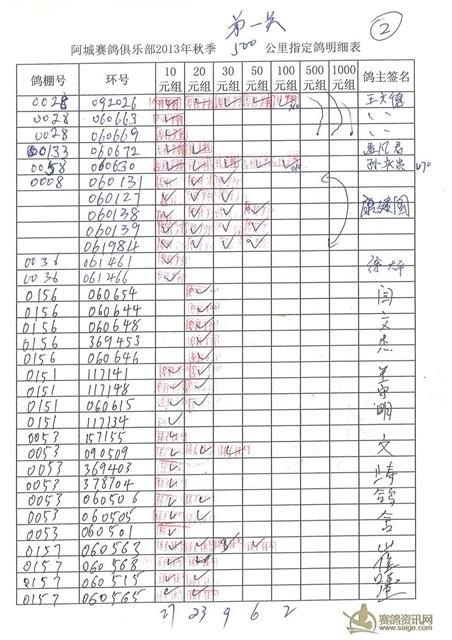 第一关
②
阿城赛鸽俱乐部2013年秋季 500 公里指定鸽明细表
鸽棚号 环号 10元组 20元组 30元组 50元组 100元组 500元组 1000元组 鸽主签名
0028 092026
0028 060663
0028 060669
00133 060672
0058 060630
0008 060131
060127
060138
060139
061984
0036 061461
0036 061466
0156 060654 闫
0156 060644
0156 060648 文
0156 369453
0156 060646 杰
0151 117141
0151 117148
0151 060615 明
0151 117134
0053 157155 文
0053 090509
0053 369403
0053 378704
0053 060506 鸽
0053 060505 舍
0053 060501
0157 060563
0157 060568
0157 060515
0157 060565
27 23 9 6 2
赛鸽资讯网
www.saige.com